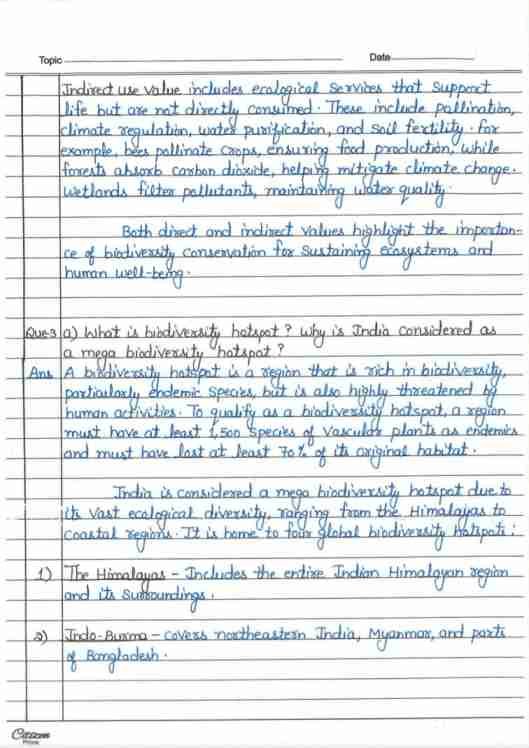 Topic
Date
Indirect use value includes ecological services that support
life but are not directly consumed. These include pollination,
climate regulation, water purification, and soil fertility. For
example, bees pollinate crops, ensuring food production, while
forests absorb carbon dioxide, helping mitigate climate change.
Wetlands filter pollutants, maintaining water quality.
Both direct and indirect values highlight the importan-
ce of biodiversity conservation for sustaining ecosystems and
human well-being.
Que-3 a) What is biodiversity hotspot? Why is India considered as
a mega biodiversity hotspot?
Ans A biodiversity hotspot is a region that is rich in biodiversity,
particularly endemic species, but is also highly threatened by
human activities. To qualify as a biodiversity hotspot, a region
must have at least 1,500 species of vascular plants as endemics
and must have lost at least 70% of its original habitat.
India is considered a mega biodiversity hotspot due to
its vast ecological diversity, ranging from the Himalayas to
coastal regions. It is home to four global biodiversity hotspots:
1) The Himalayas - Includes the entire Indian Himalayan region
and its surroundings.
2) Indo-Burma - covers northeastern India, Myanmar, and parts
of Bangladesh.
Citizen